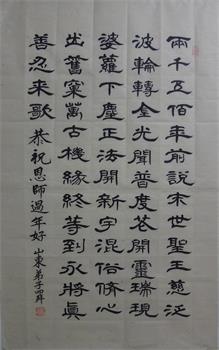 兩千五佰年前說末世聖王慈泛
波輪轉金光開普度花開靈瑞現
婆蘿下塵正法開新宇混俗脩心
出舊窠萬古機緣終等到永將真
善忍來歌 恭祝恩師過年好 山東弟子叩拜